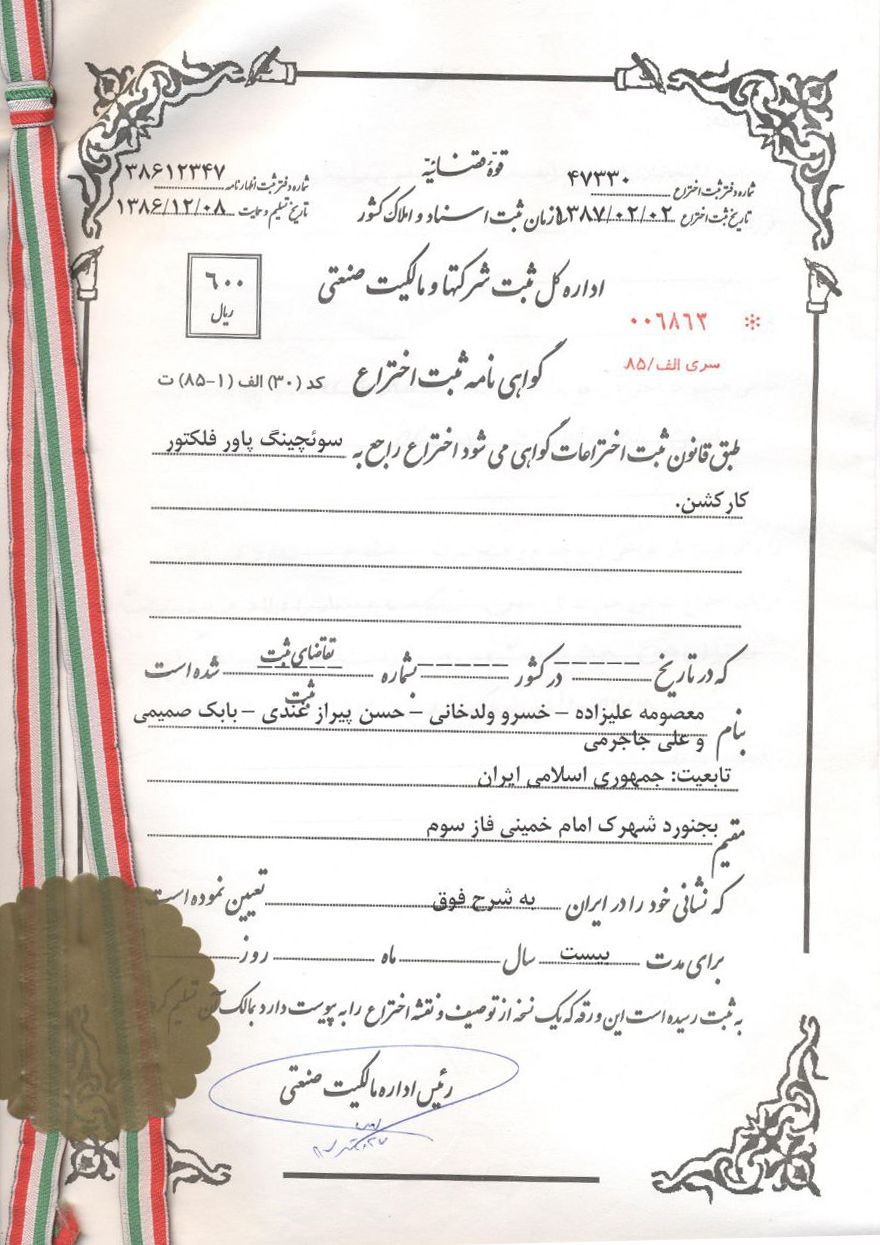 قوهٔ قضائیّه
شماره دفتر ثبت اختراع ۴۷۳۳۰
شماره دفتر ثبت اظهارنامه ۳۸۶۱۲۳۴۷
تاریخ ثبت اختراع ۱۳۸۷/۰۲/۰۲
زمان ثبت اسناد و املاک کشور
تاریخ تسلیم و حمایت ۱۳۸۶/۱۲/۰۸
اداره کل ثبت شرکتها و مالکیت صنعتی
۶۰۰
ریال
۰۰۶۸۶۳
سری الف/۸۵
گواهی نامه ثبت اختراع
کد (۳۰) الف (۱-۸۵) ت
طبق قانون ثبت اختراعات گواهی می شود اختراع راجع به سوئچینگ پاور فلکتور
کارکشن.
که در تاریخ ------ در کشور ------ بشماره تقاضای ثبت شده است
ثبت
بنام معصومه علیزاده – خسرو ولدخانی – حسن پیراز غندی – بابک صمیمی
و علی جاجرمی
تابعیت: جمهوری اسلامی ایران
مقیم بجنورد شهرک امام خمینی فاز سوم
که نشانی خود را در ایران به شرح فوق تعیین نموده است
برای مدت بیست سال ماه روز
به ثبت رسیده است این ورقه که یک نسخه از توصیف و نقشه اختراع را به پیوست دارد بمالک آن تسلیم
رئیس اداره مالکیت صنعتی